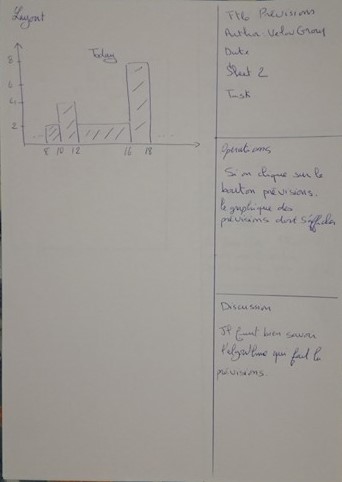 Layout
Today
8
6
4
2
8 10 12 16 18
Title Prévisions
Author: Velov Group
Date
Sheet 2
Task
Operations
Si on clique sur le
bouton prévisions.
le graphique des
prévisions doit s'afficher
Discussion
Il faut bien savoir
l'algorithme qui fait la
prévisions.